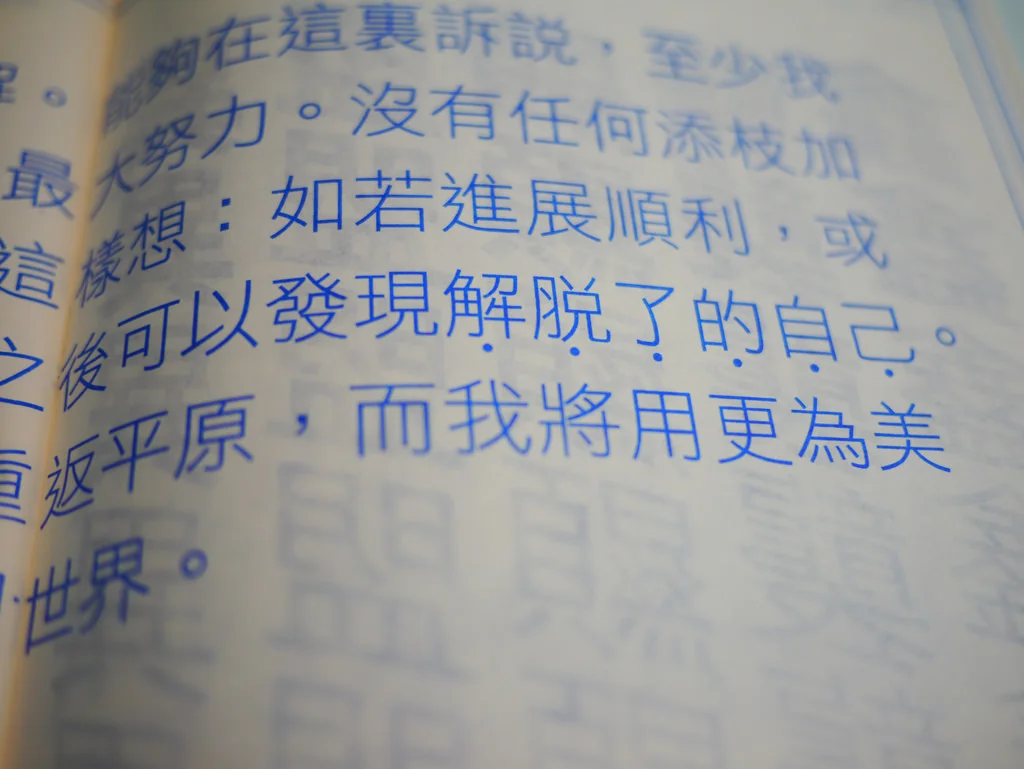 能夠在這裏訴説，至少我
大努力。沒有任何添枝加
樣想：如若進展順利，或
後可以發現解脱了的自己。
返平原，而我將用更為美
世界。
。
最
這
之
重